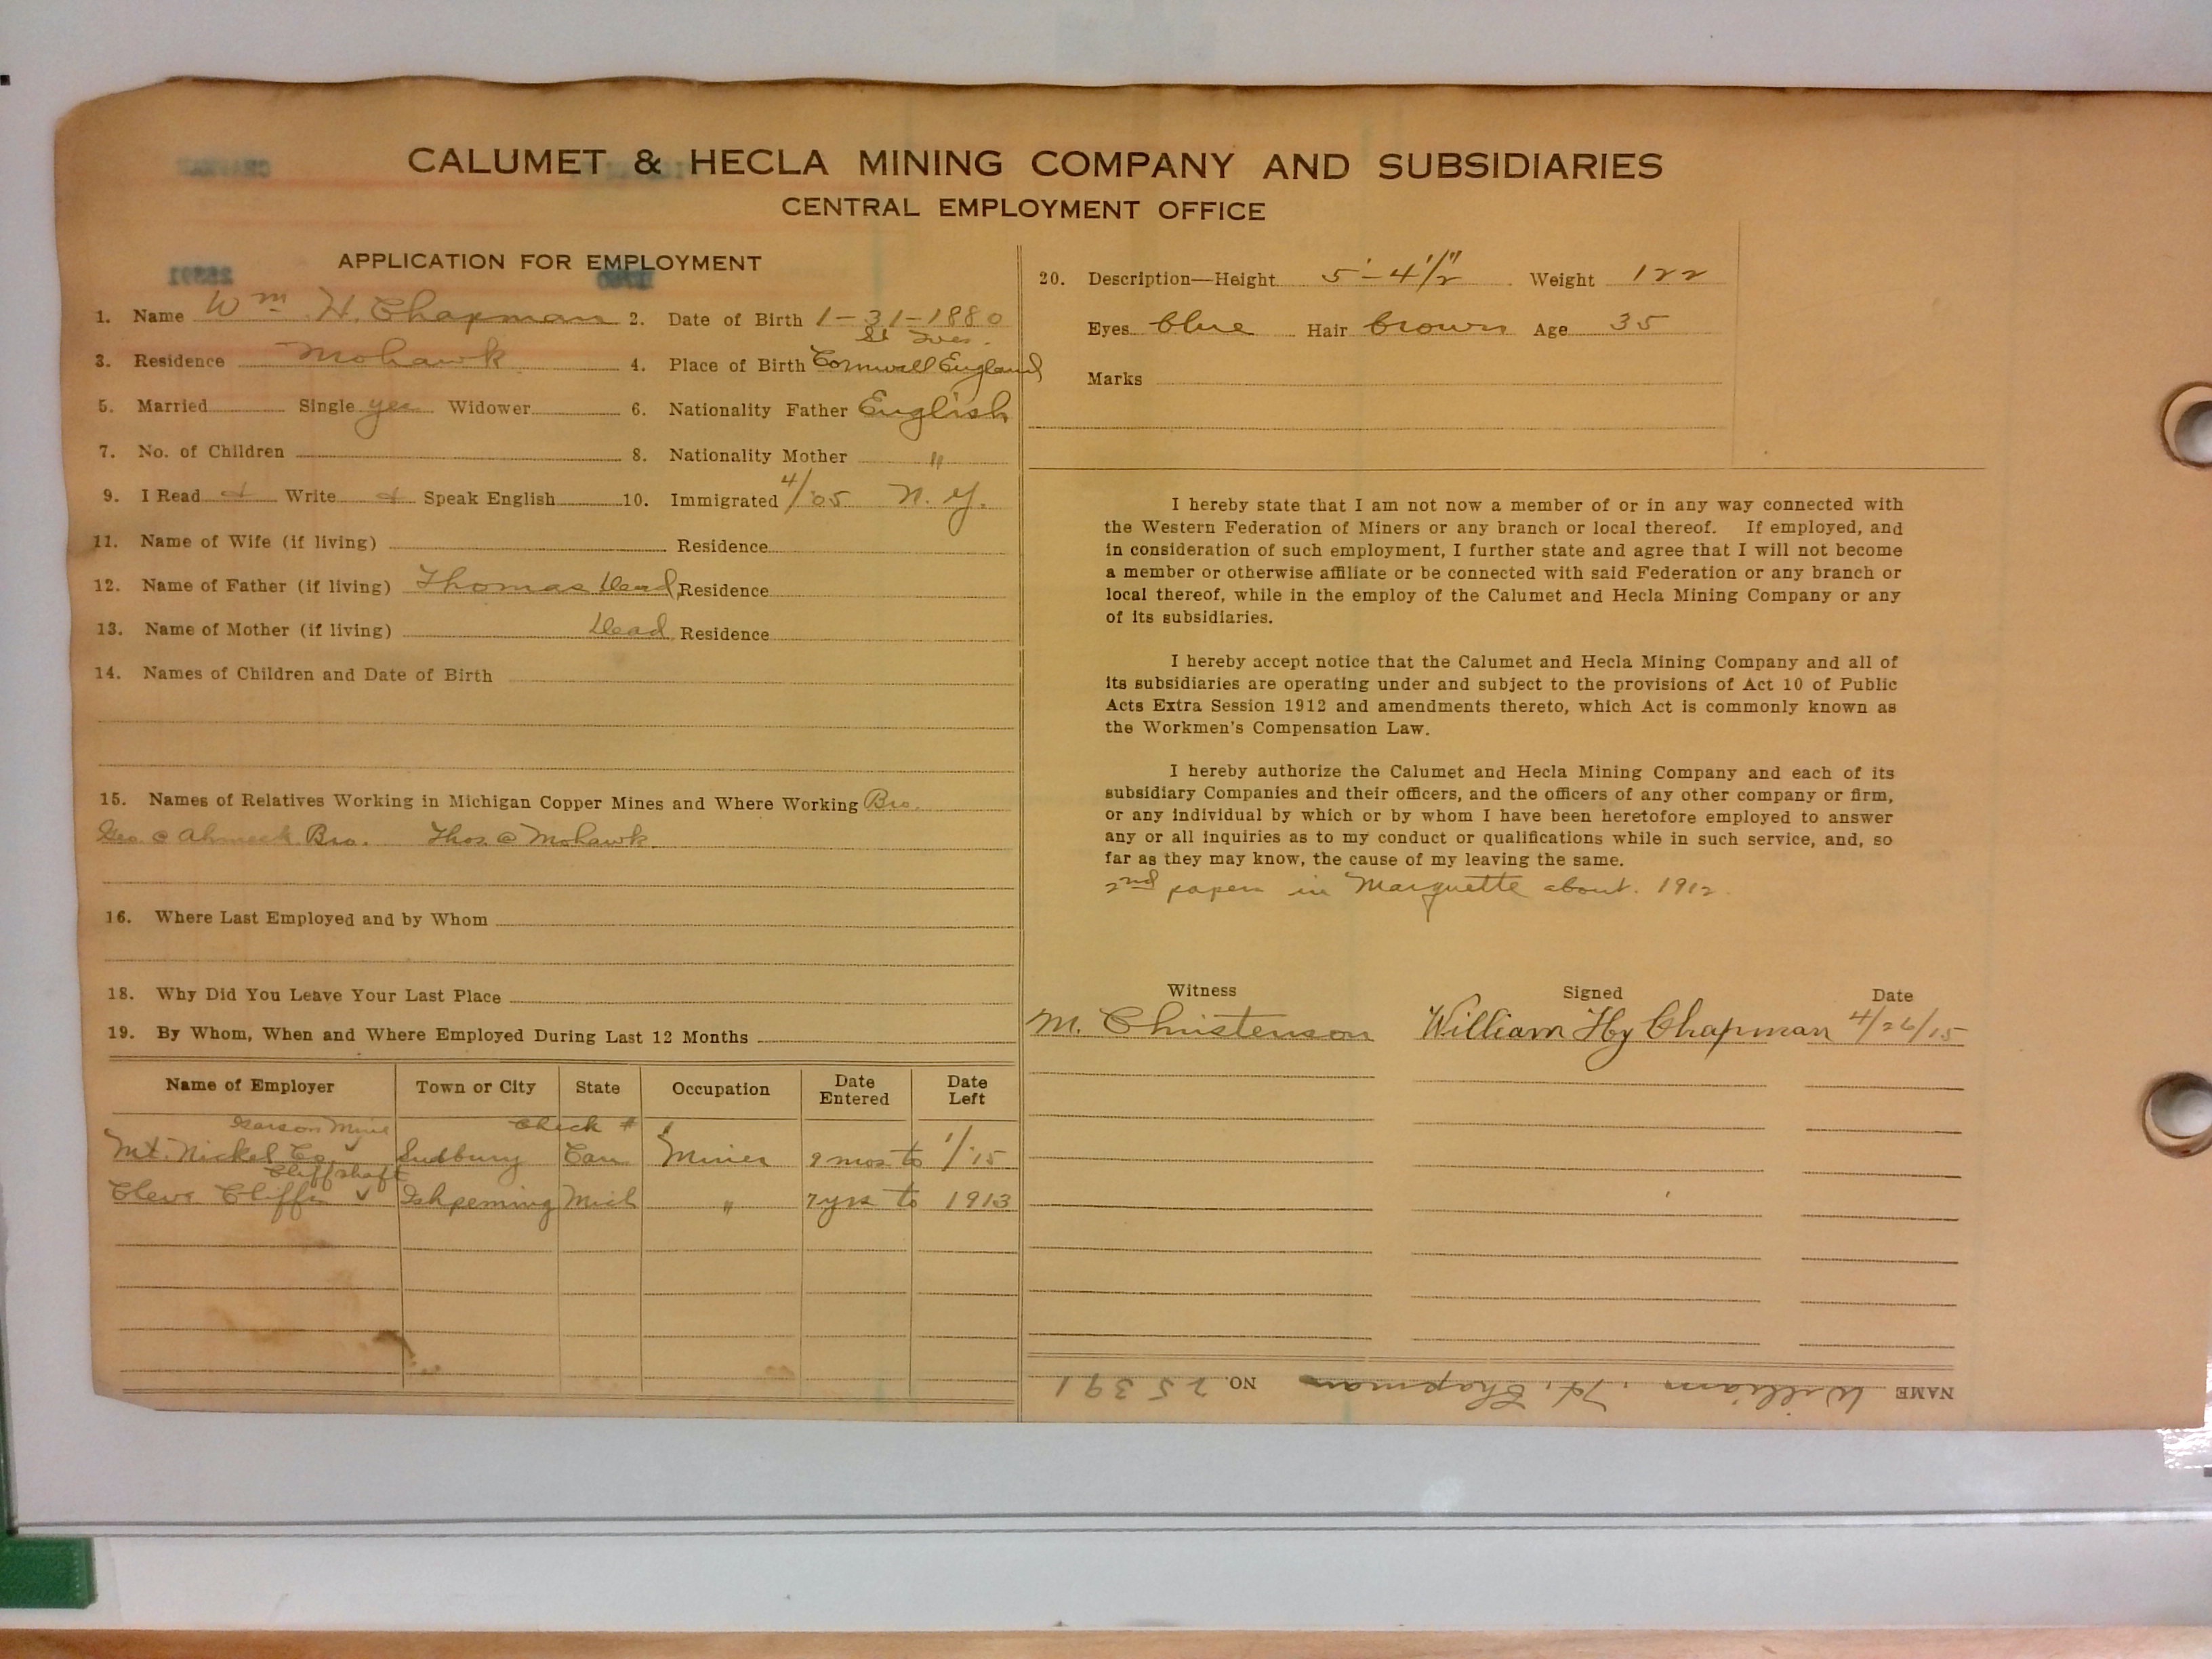 CALUMET & HECLA MINING COMPANY AND SUBSIDIARIES
CENTRAL EMPLOYMENT OFFICE
APPLICATION FOR EMPLOYMENT
1. Name Wm H. Chapman 2. Date of Birth 1-31-1880
St Ives.
3. Residence Mohawk 4. Place of Birth Cornwall England
5. Married Single yes Widower 6. Nationality Father English
7. No. of Children 8. Nationality Mother "
9. I Read & Write & Speak English 10. Immigrated 4/05 N.Y.
11. Name of Wife (if living) Residence
12. Name of Father (if living) Thomas Dead Residence
13. Name of Mother (if living) Dead Residence
14. Names of Children and Date of Birth
15. Names of Relatives Working in Michigan Copper Mines and Where Working Bro.
Geo @ Ahmeek. Bro. Thos. @ Mohawk.
16. Where Last Employed and by Whom
18. Why Did You Leave Your Last Place
19. By Whom, When and Where Employed During Last 12 Months
Name of Employer Town or City State Occupation Date Entered Date Left
Garson Mine Check #
Mt. Nickel Co ✓ Sudbury Can Miner 9 mos to 1/'15
Cliffshaft
Cleve Cliffs ✓ Ishpeming Mich " 7 yrs to 1913
20. Description—Height 5'-4 1/2" Weight 122
Eyes blue Hair brown Age 35
Marks
I hereby state that I am not now a member of or in any way connected with
the Western Federation of Miners or any branch or local thereof. If employed, and
in consideration of such employment, I further state and agree that I will not become
a member or otherwise affiliate or be connected with said Federation or any branch or
local thereof, while in the employ of the Calumet and Hecla Mining Company or any
of its subsidiaries.
I hereby accept notice that the Calumet and Hecla Mining Company and all of
its subsidiaries are operating under and subject to the provisions of Act 10 of Public
Acts Extra Session 1912 and amendments thereto, which Act is commonly known as
the Workmen's Compensation Law.
I hereby authorize the Calumet and Hecla Mining Company and each of its
subsidiary Companies and their officers, and the officers of any other company or firm,
or any individual by which or by whom I have been heretofore employed to answer
any or all inquiries as to my conduct or qualifications while in such service, and, so
far as they may know, the cause of my leaving the same.
2nd papers in Marquette about. 1912.
Witness Signed Date
M. Christenson William Hy Chapman 4/26/15
NAME William. H. Chapman NO. 25391